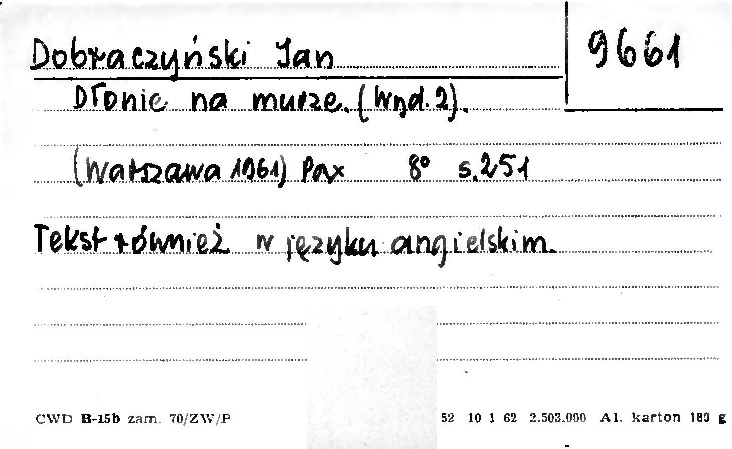 Dobraczyński Jan
9661
Dłonie na murze. (Wyd. 2).
(Warszawa 1961) Pax 8° s. 251
Tekst również w języku angielskim.
CWD B-15b zam. 70/ZW/P 52 10 1 62 2.503.000 A1. karton 180 g